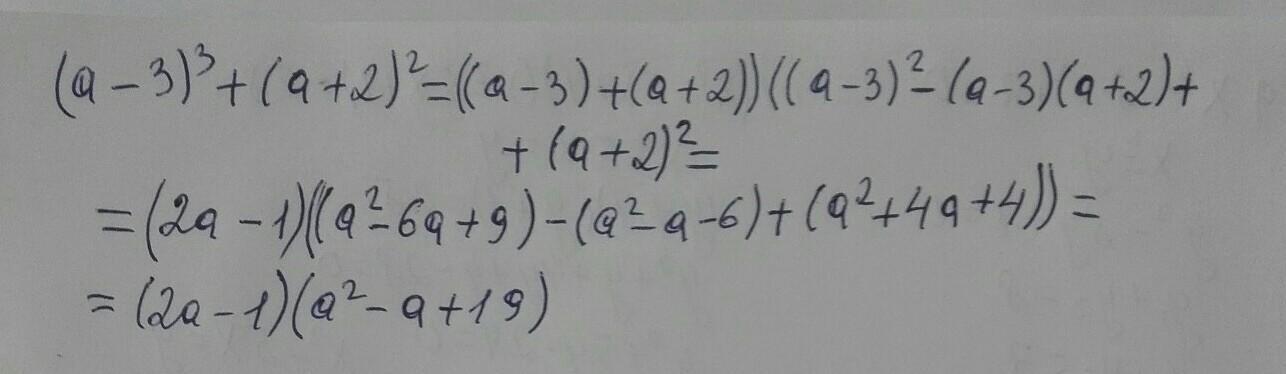 (a - 3)³ + (a + 2)² = ((a - 3) + (a + 2))((a - 3)² - (a - 3)(a + 2) +
+ (a + 2)² =
= (2a - 1)((a² - 6a + 9) - (a² - a - 6) + (a² + 4a + 4)) =
= (2a - 1)(a² - a + 19)